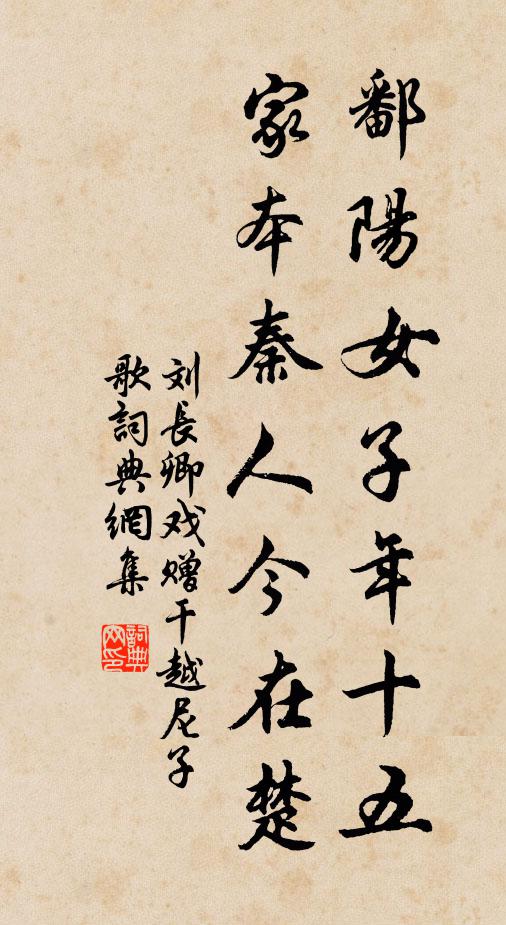 鄱陽女子年十五
家本秦人今在楚
刘長卿戏赠干越尼子
歌詞典網集
詞典網印